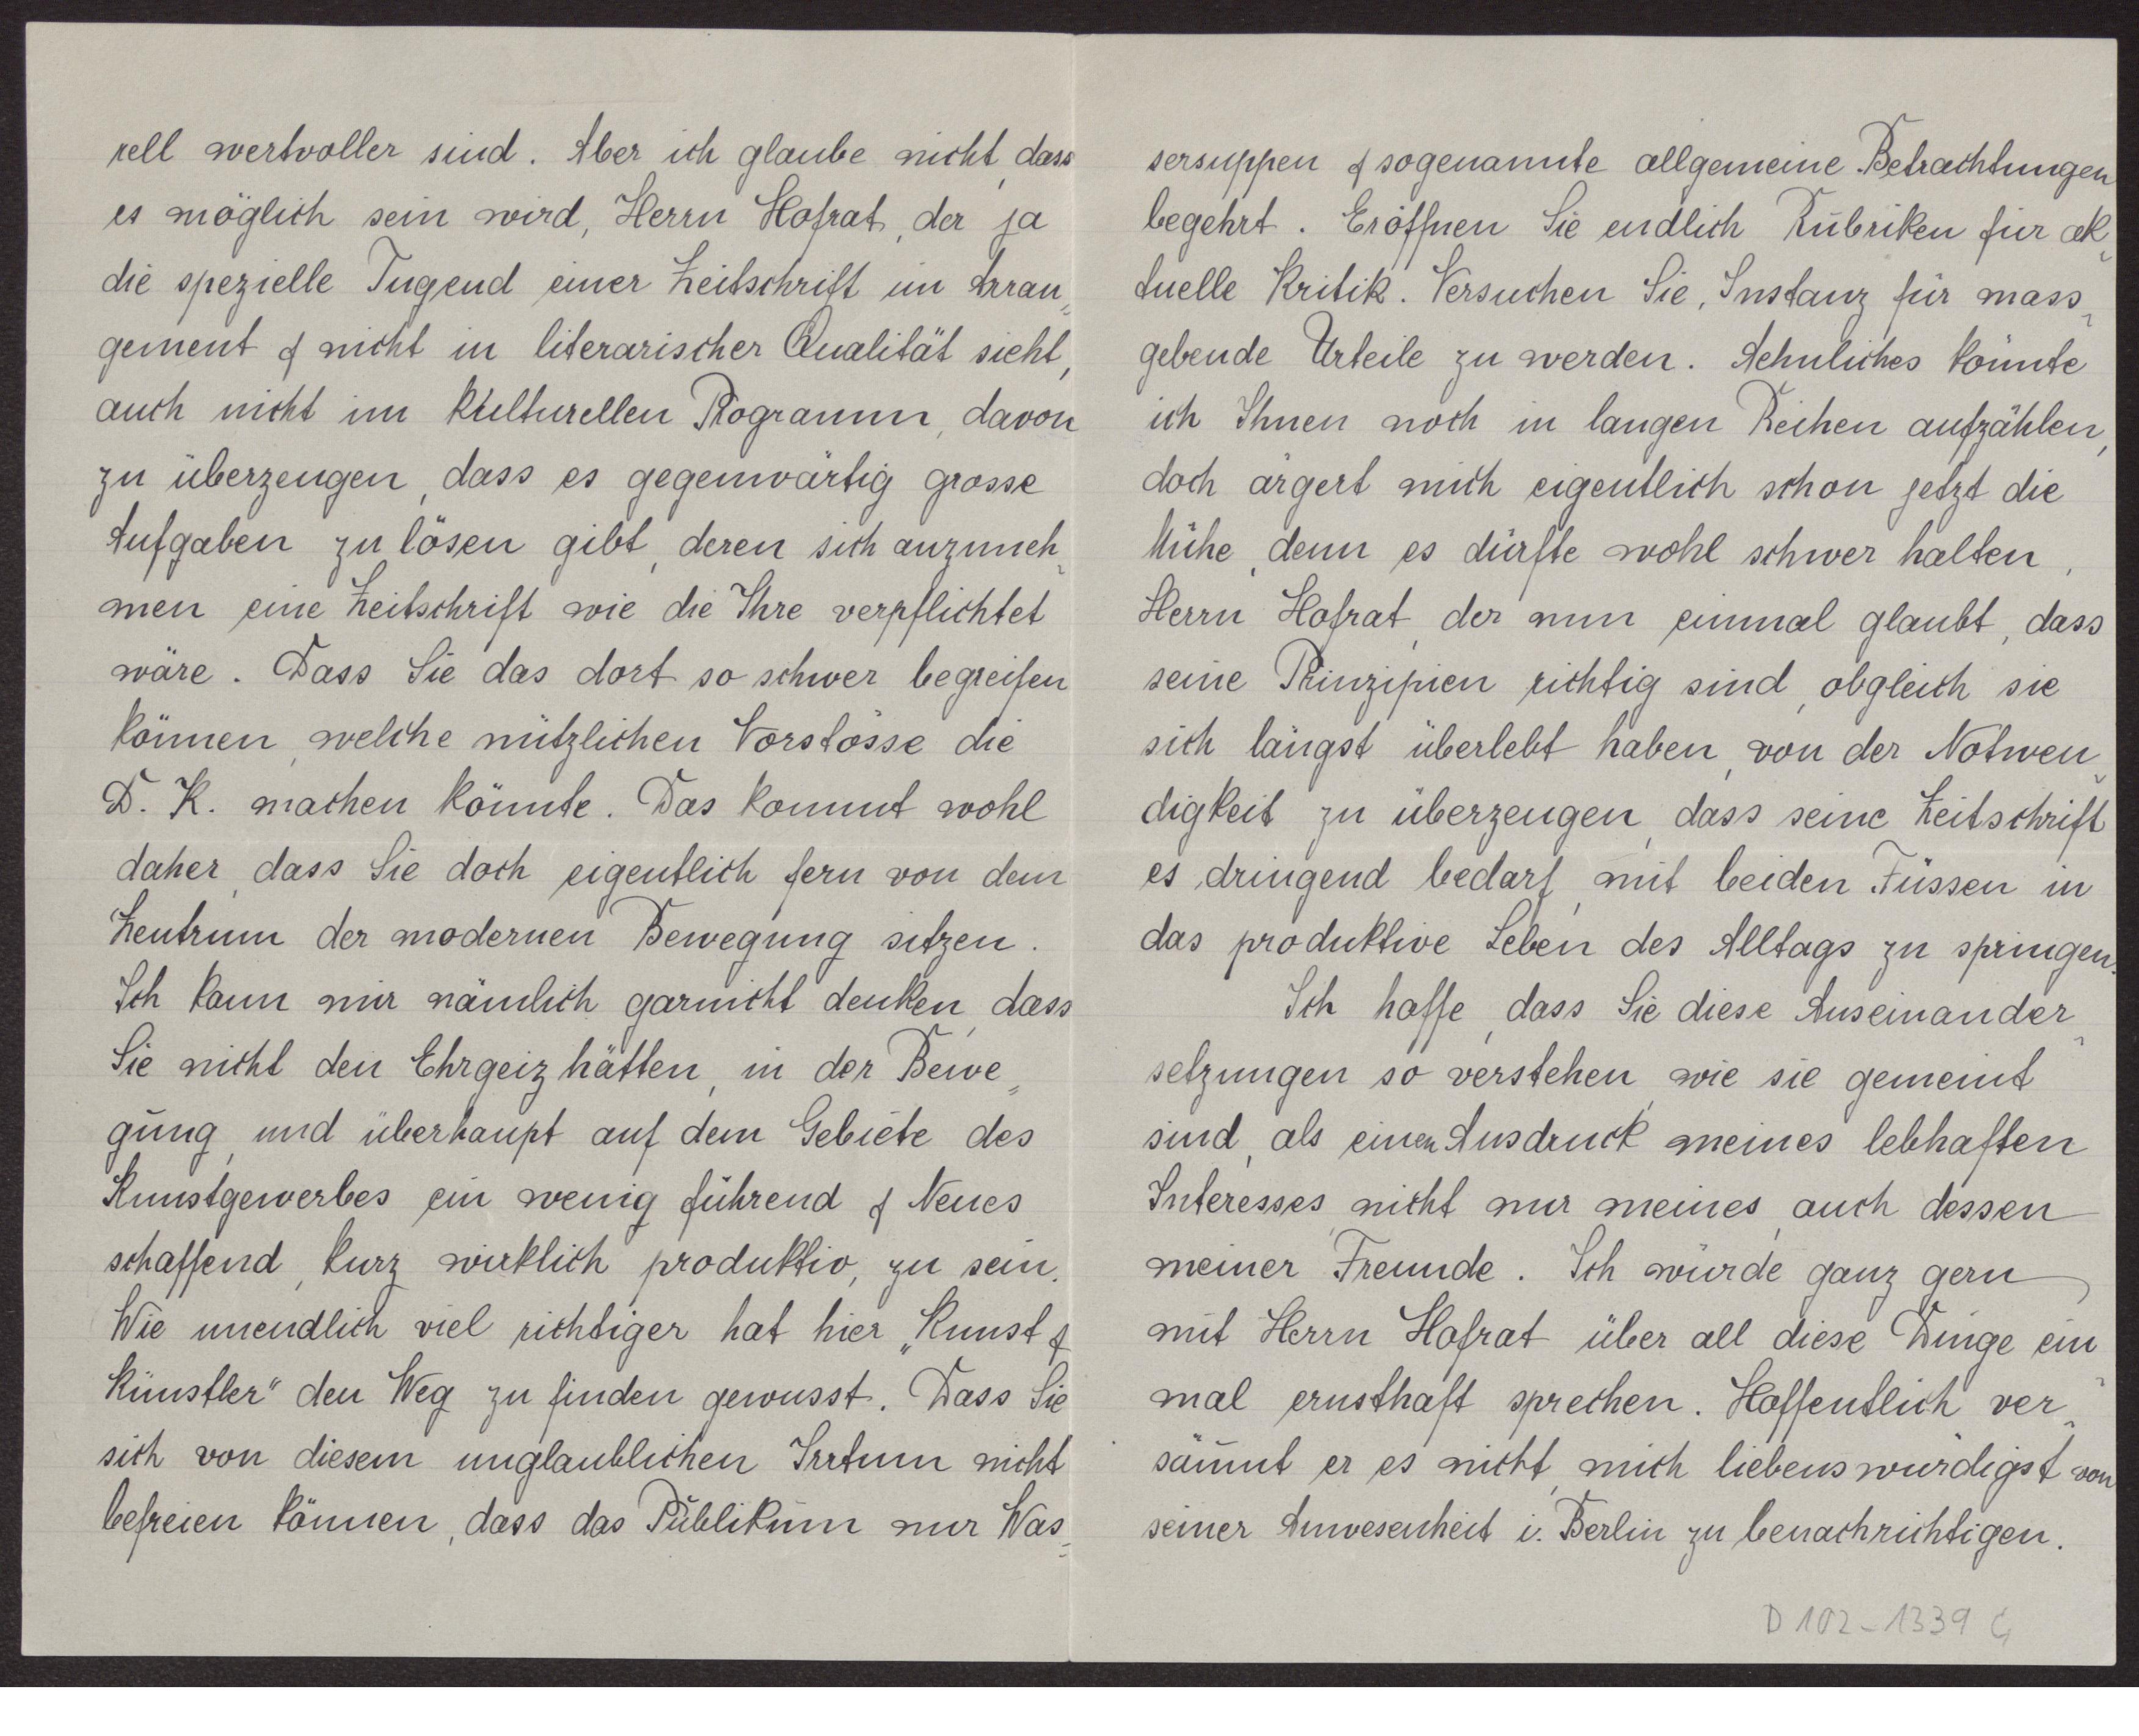 rell wertvoller sind. Aber ich glaube nicht, dass
es möglich sein wird, Herrn Hofrat, der ja
die spezielle Tugend einer Zeitschrift im Arran-
gement & nicht in literarischer Qualität sieht,
auch nicht im kulturellen Programm, davon
zu überzeugen, dass es gegenwärtig grosse
Aufgaben zu lösen gibt, deren sich anzuneh-
men eine Zeitschrift wie die Ihre verpflichtet
wäre. Dass Sie das dort so schwer begreifen
können, welche nützlichen Vorstösse die
D. K. machen könnte. Das kommt wohl
daher, dass Sie doch eigentlich fern von dem
Zentrum der modernen Bewegung sitzen.
Ich kann mir nämlich garnicht denken, dass
Sie nicht den Ehrgeiz hätten, in der Bewe-
gung, und überhaupt auf dem Gebiete des
Kunstgewerbes ein wenig führend & Neues
schaffend, kurz wirklich produktiv, zu sein.
Wie unendlich viel richtiger hat hier „Kunst &
Künstler" den Weg zu finden gewusst. Dass Sie
sich von diesem unglaublichen Irrtum nicht
befreien können, dass das Publikum nur Was-
sersuppen & sogenannte allgemeine Betrachtungen
begehrt. Eröffnen Sie endlich Rubriken für ak-
tuelle Kritik. Versuchen Sie, Instanz für mass-
gebende Urteile zu werden. Aehnliches könnte
ich Ihnen noch in langen Reihen aufzählen,
doch ärgert mich eigentlich schon jetzt die
Mühe, denn es dürfte wohl schwer halten,
Herrn Hofrat, der nun einmal glaubt, dass
seine Prinzipien richtig sind, obgleich sie
sich längst überlebt haben, von der Notwen-
digkeit zu überzeugen, dass seine Zeitschrift
es dringend bedarf, mit beiden Füssen in
das produktive Leben des Alltags zu springen.
Ich hoffe, dass Sie diese Auseinander-
setzungen so verstehen, wie sie gemeint
sind, als einen Ausdruck meines lebhaften
Interesses, nicht nur meines, auch dessen
meiner Freunde. Ich würde ganz gern
mit Herrn Hofrat über all diese Dinge ein-
mal ernsthaft sprechen. Hoffentlich ver-
säumt er es nicht, mich liebenswürdigst von
seiner Anwesenheit i. Berlin zu benachrichtigen.
D 102-1339 G